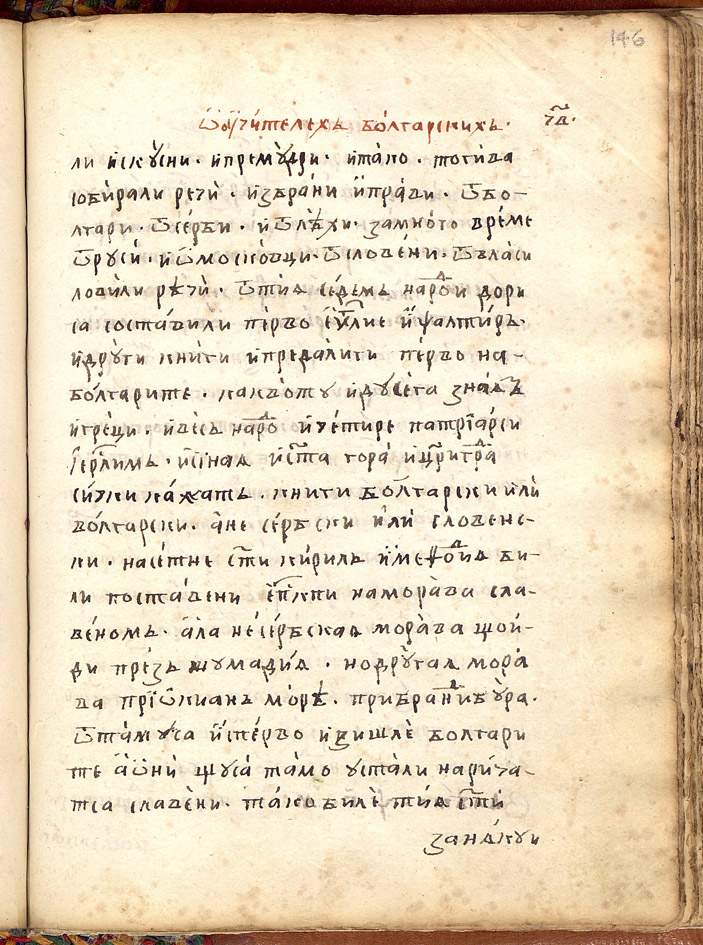 146
Ѡ оучи́телехъ бо́лгарскихъ · ч҃д·
ли и҆скꙋ́сни · и҆премꙋ́дри · и҆та́ко · тогива
собира́ли речи̏ · и҆збра́ни и҆пра́ви · ѿбо-
лгари · ѿсе́рби · и҆ѿ · замно́го вре́ме
ѿрꙋси̏ · и҆ѿмоско́вци · ѿслове́ни · ѿвласи
лови́ли рѣ́чи · ѿтиѧ се́демь наро́ди дори
са соста́вили пе́рво еѵ҃лие и҆ѱалти́рь·
и҆дрꙋ́ги кни́ги и҆преда́лиги пе́рво на-
бо́лгарите · какво́то и҆дꙋсега зна́ѧтъ
и҆гре́ци · и҆ве́сь наро́д и҆че́тире патрїа́рси
І҆ер҃лимъ · и҆сина́ѧ и҆ст҃а гора̀ и҆цр҃игра́д
си́чки ка́жатъ · кни́ги бо́лгарски и҆ли̏
бо́лгарски · а҆не се́рбски и҆ли̏ словенс-
ки · насе́тне ст҃и ки́рилъ и҆мефо́диѧ би-
ли поста́вени еп҃кпи намора́ва сла-
ве́номъ · а҆ла не́сербскаѧ мора́ва що́й-
ди пре́зъ шꙋмади́ѧ · нодрꙋ́гаѧ мора̀
ва прїѡ҆киѧнъ мо́рѣ · при
ѿта́мꙋса и҆пе́рво и҆зишле̏ болгари
те а҆ѡ҆ни̏ щꙋса та́мо ꙋста́ли нари́ча-
тса славе́ни · та́ко биле̏ ти́ѧ ст҃и